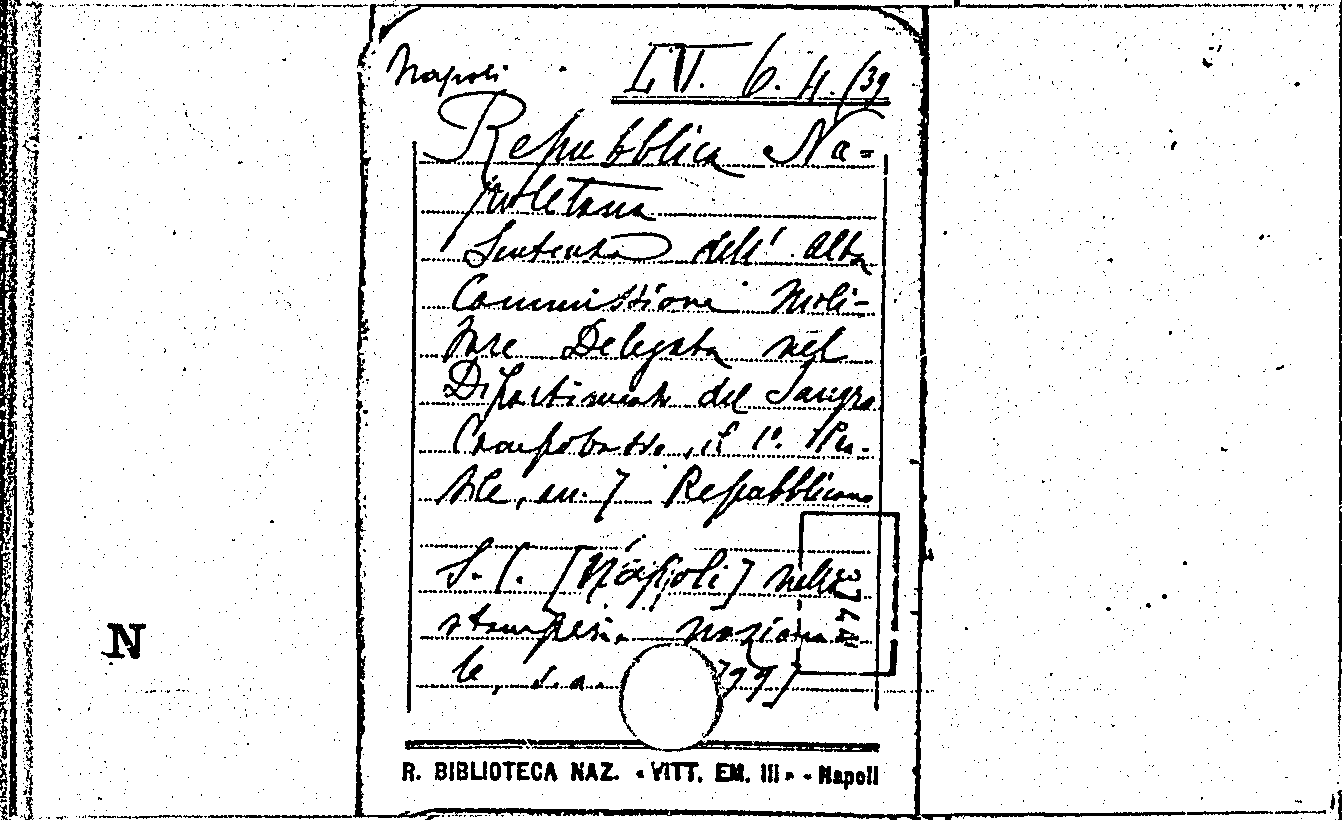 Napoli LV. 6. 4. (39
Repubblica Na=
poletana
Sentenza dell' alta
Commissione Mili-
tare Delegata nel
Dipartimento del Sangro
Campobasso, il 1°. Pra-
tile, an. 7 Repubblicano
S. l. [Napoli] nella
stamperia naziona
le, s.a. 799]
N
R. BIBLIOTECA NAZ. « VITT. EM. III » - Napoli